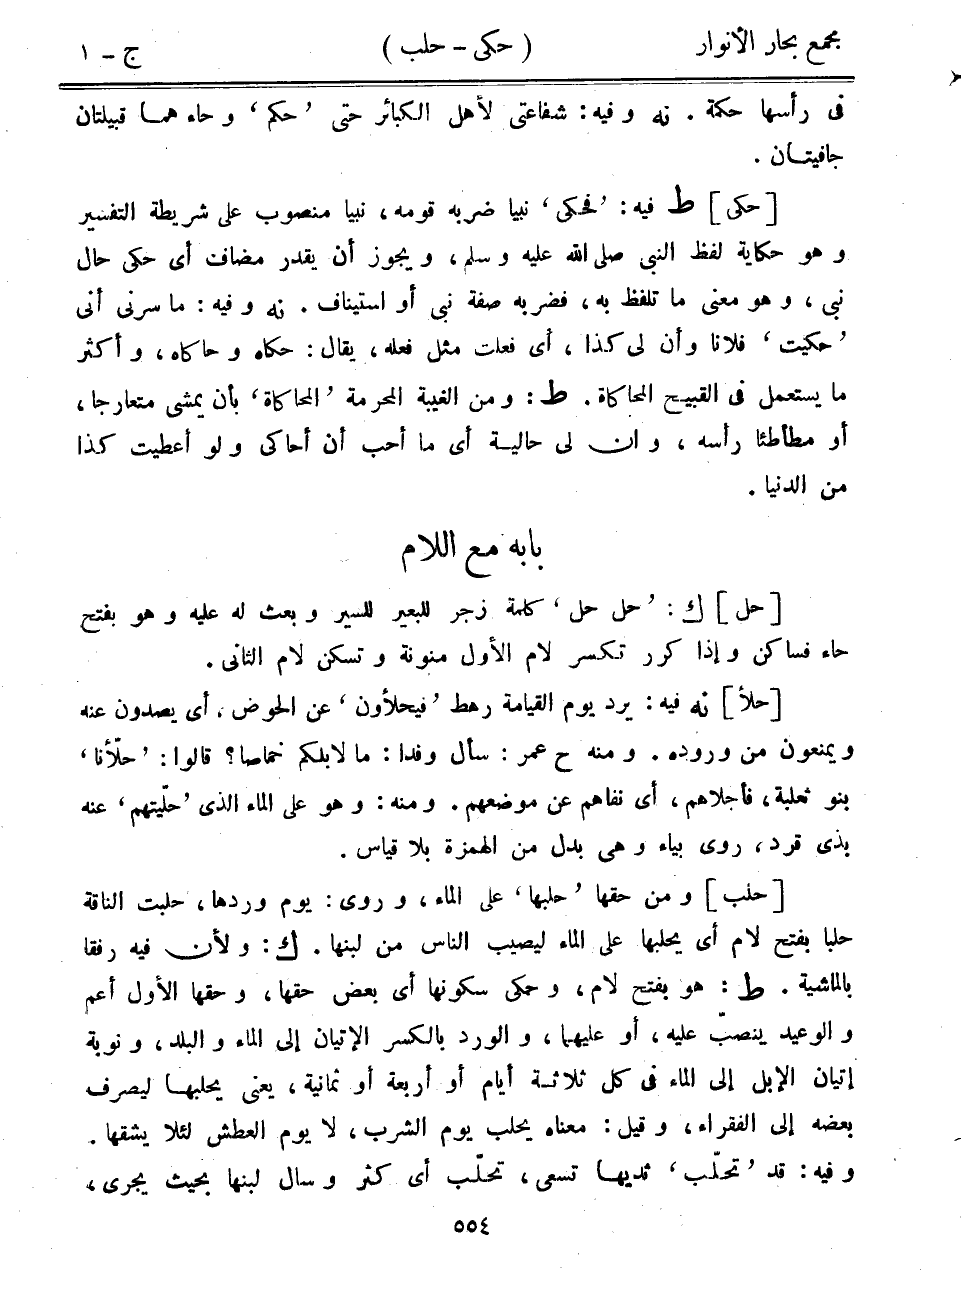 مجمع بحار الأنوار ( حكى - حلب ) ج - ١
فى رأسها حكمة . نه و فيه : شفاعتى لأهل الكبائر حتى ’حكم‘ و حاء هما قبيلتان
جافيتان .
[حكى] ط فيه : ’فحكى‘ نبيا ضربه قومه ، نبيا منصوب على شريطة التفسير
و هو حكاية لفظ النبى صلى الله عليه و سلم ، و يجوز أن يقدر مضاف أى حكى حال
نبى ، و هو معنى ما تلفظ به ، فضربه صفة نبى أو استيناف . نه و فيه : ما سرنى أنى
’حكيت‘ فلانا و أن لى كذا ، أى فعلت مثل فعله ، يقال : حكاه و حاكاه ، و أكثر
ما يستعمل فى القبيح المحاكاة . ط : و من الغيبة المحرمة ’المحاكاة‘ بأن يمشى متعارجا ،
أو مطأطئا رأسه ، و ان لى حالية أى ما أحب أن أحاكى و لو أعطيت كذا
من الدنيا .
بابه مع اللام
[حل] ك : ’حل حل‘ كلمة زجر للبعير للسير و بعث له عليه و هو بفتح
حاء فساكن و إذا كرر تكسر لام الأول منونة و تسكن لام الثانى .
[حلأ] نه فيه : يرد يوم القيامة رهط ’فيحلأون‘ عن الحوض ، أى يصدون عنه
و يمنعون من وروده . و منه ح عمر : سأل وفدا : ما لابلكم خماصا؟ قالوا : ’حلّأنا‘
بنو ثعلبة ، فأجلاهم ، أى نفاهم عن موضعهم . و منه : و هو على الماء الذى ’حلّيتهم‘ عنه
بذى قرد ، روى بياء و هى بدل من الهمزة بلا قياس .
[حلب] و من حقها ’حلبها‘ على الماء ، و روى : يوم وردها ، حلبت الناقة
حلبا بفتح لام أى يحلبها على الماء ليصيب الناس من لبنها . ك : و لأن فيه رفقا
بالماشية . ط : هو بفتح لام ، و حكى سكونها أى بعض حقها ، و حقها الأول أعم
و الوعيد ينصبّ عليه ، أو عليهما ، و الورد بالكسر الإتيان إلى الماء و البلد ، و نوبة
إتيان الإبل إلى الماء فى كل ثلاثة أيام أو أربعة أو ثمانية ، يعنى يحلبها ليصرف
بعضه إلى الفقراء ، و قيل : معناه يحلب يوم الشرب ، لا يوم العطش لئلا يشقها .
و فيه : قد ’تحلّب‘ ثديها تسعى ، تحلّب أى كثر و سال لبنها بحيث يجرى ،
٥٥٤